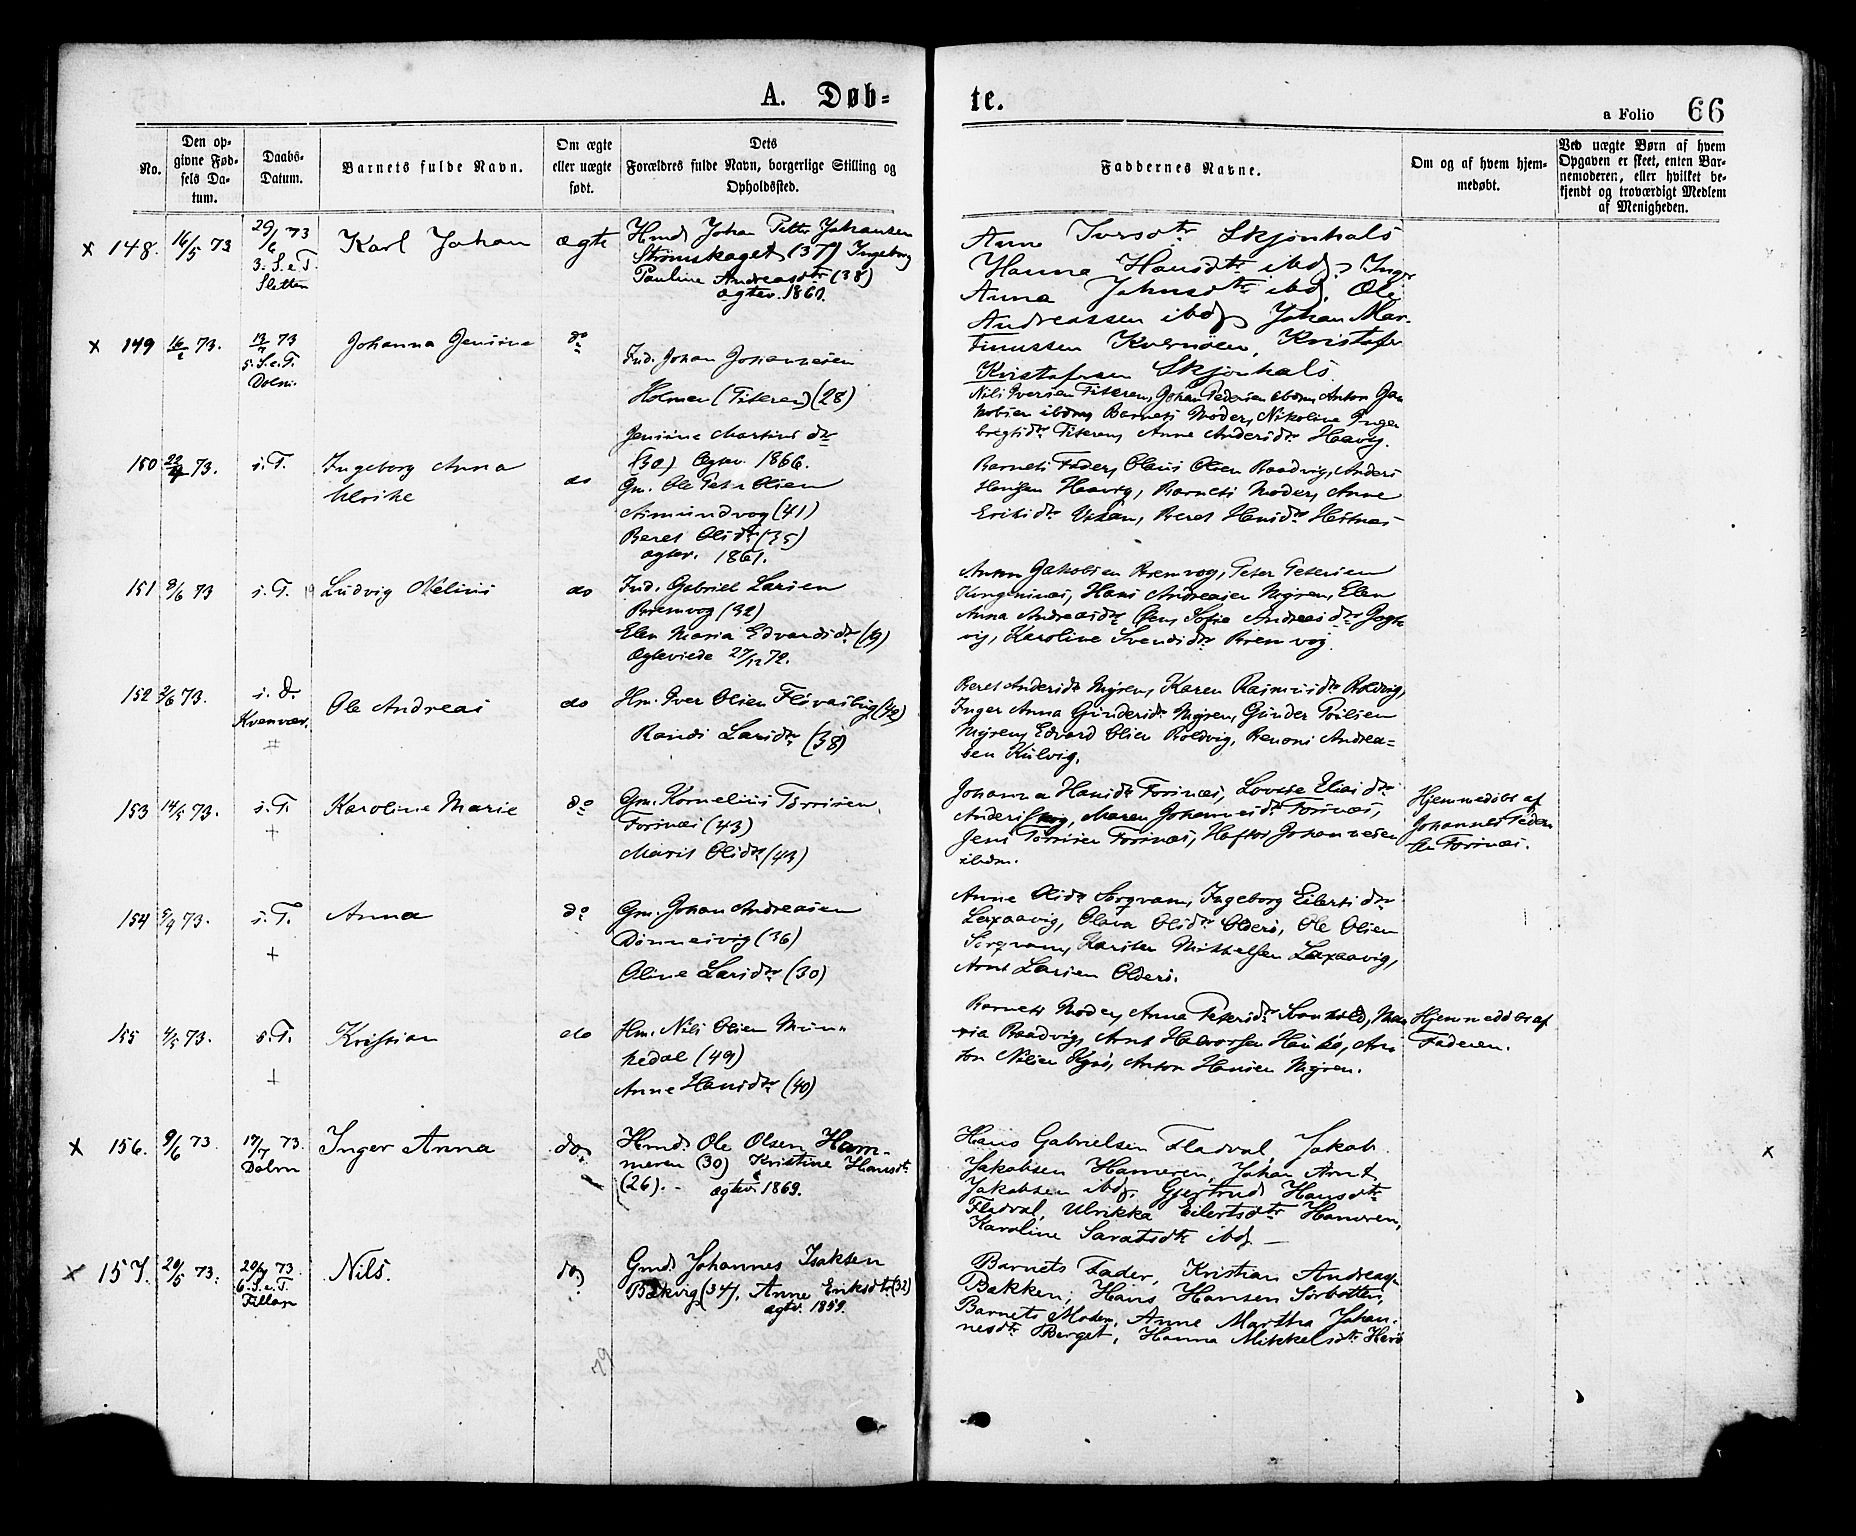 A. Døb=
te.
a Folio 66
No.
Den op-
givne Fød-
sels Da-
tum.
Daabs-
Datum.
Barnets fulde Navn.
Om ægte
eller uægte
født.
Dets
Forældres fulde Navn, borgerlige Stilling og
Opholdssted.
Faddernes Navne.
Om og af hvem hjem-
medøbt.
Ved uægte Børn af hvem
Opgaven er skeet, enten Bar-
nemoderen, eller hvilket be-
kjendt og troværdigt Medlem
af Menigheden.
x 148. 16/5 73
29/6 73
3. S. e. T.
Sletten
Karl Johan
ægte
Hmd. Johan Petter Johansen
Strømskaget (37) Ingeborg
Pauline Andreasdtr (38)
ægtev. 1860.
Anne Iversdtr Skjønhals
Hanna Hansdtr ibd., Inger
Anna Johnsdtr ibd. Ole
Andreassen ibd., Johan Mar-
tinussen Kvernøen, Kristofer
Kristofersen Skjønhals
x 149 16/ 73.
13/7 73
5. S. e. T.
Dolm.
Johanna Jensine
do
Ind. Johan Johannesen
Holmen (Fiteren) (28)
Jensine Martins dtr
(30) Ægtev. 1866.
Nils Iversen Fiteren, Johan Pedersen ibdm, Anton Ja-
kobsen ibdm, Barnets Moder, Nikoline Inge-
bregtsdtr Fiteren, Anne Andersdtr Haavig.
150 73.
s. T.
Ingeborg Anna
Ulrike
do
Gm. Ole Peter Olsen
Asmundvog (41)
Beret Olsdtr (35)
ægtev. 1861.
Barnets Fader, Olaus Olsen Baadvig, Anders
Hansen Haavig, Barnets Moder, Anne
Eriksdtr Vikan, Beret Hansdtr Hestnes
151 8/6 73
s. T.
Ludvig Melius
do
Ind. Gabriel Larsen
Bremvog (32)
Elen Maria Edvardsdtr (19)
Ægteviede 27/12 72.
Anton Jakobsen Bremvog, Peter Petersen
Kongensnes, Hans Andreasen Myren, Elen
Anna Andreasdtr Sofie Andreasdtr
vig, Karoline Svendsdtr Bremvog.
152 2/6 73.
s. D.
Kvenvær.
Ole Andreas
do
Hm. Iver Olsen Fløvaslig (42)
Randi Larsdtr (38)
Beret Andersdtr Myren, Karen Rasmusdtr Boldvig,
Inger Anna Gundersdtr Myren, Gunder Paulsen
Myren, Edvard Olsen Boldvig, Benoni Andrea-
sen Kulvig.
153 14/5 73.
s. T.
+
Karoline Marie
do
Gm. Kornelius Torrisen
Forsnes (43)
Marit Olsdtr (43)
Johanna Hansdtr Forsnes, Lovise Eliasdtr
Anderskog, Maren Johannesdtr Forsnes,
Jens Torrisen Forsnes, Haftor Johannesen
ibdm.
Hjemmedøbt af
Johannes Peder-
sen Forsnes.
154 5/4 73.
s. T.
+
Anna
do
Gm. Johan Andreasen
Dønnesvig (36)
Oline Larsdtr (30)
Anne Olsdtr Sørqvam, Ingeborg Eilertsdtr
Laxaavig, Olava Olsdtr Olderø, Ole Olsen
Sørqvam, Karsten Mikkelsen Laxaavig,
Arnt Larsen Olderø.
155 4/5 73.
s. T.
+
Kristian
do
Hm. Nils Olsen Mun-
kedal (49)
Anne Hansdtr (40)
Barnets Moder, Anna Petersdtr Ma-
ria Baadvig, Arnt Halvorsen An-
ton Nilsen Anton Hansen Myren.
Hjemmedøbt af
Faderen.
x 156. 9/6 73.
17/7 73.
Dolm
Inger Anna
do,
Hmd. Ole Olsen Ham-
meren (30) Kristine Hansdtr
(26). - ægtev. 1869.
Hans Gabrielsen Fladval, Jakob
Jakobsen Hameren, Johan Arnt
Jakobsen ibd. Gjertrud Hansdtr
Fladval, Ulrikka Eilertsdtr Hameren,
Karoline Saratsdtr ibd. —
x
x 157. 20/5 73.
20/7 73
6. S. e. T.
Fillan
Nils.
do,
Gmd. Johannes Isaksen
Bækvig (34), Anne Eriksdtr (32)
ægtev. 1859.
Barnets Fader, Kristian Andreas.
Bakken, Hans Hansen Sørbotten,
Barnets Moder, Anne Martha Johan-
nesdtr Berget, Hanna Mikkelsdtr Herø
79